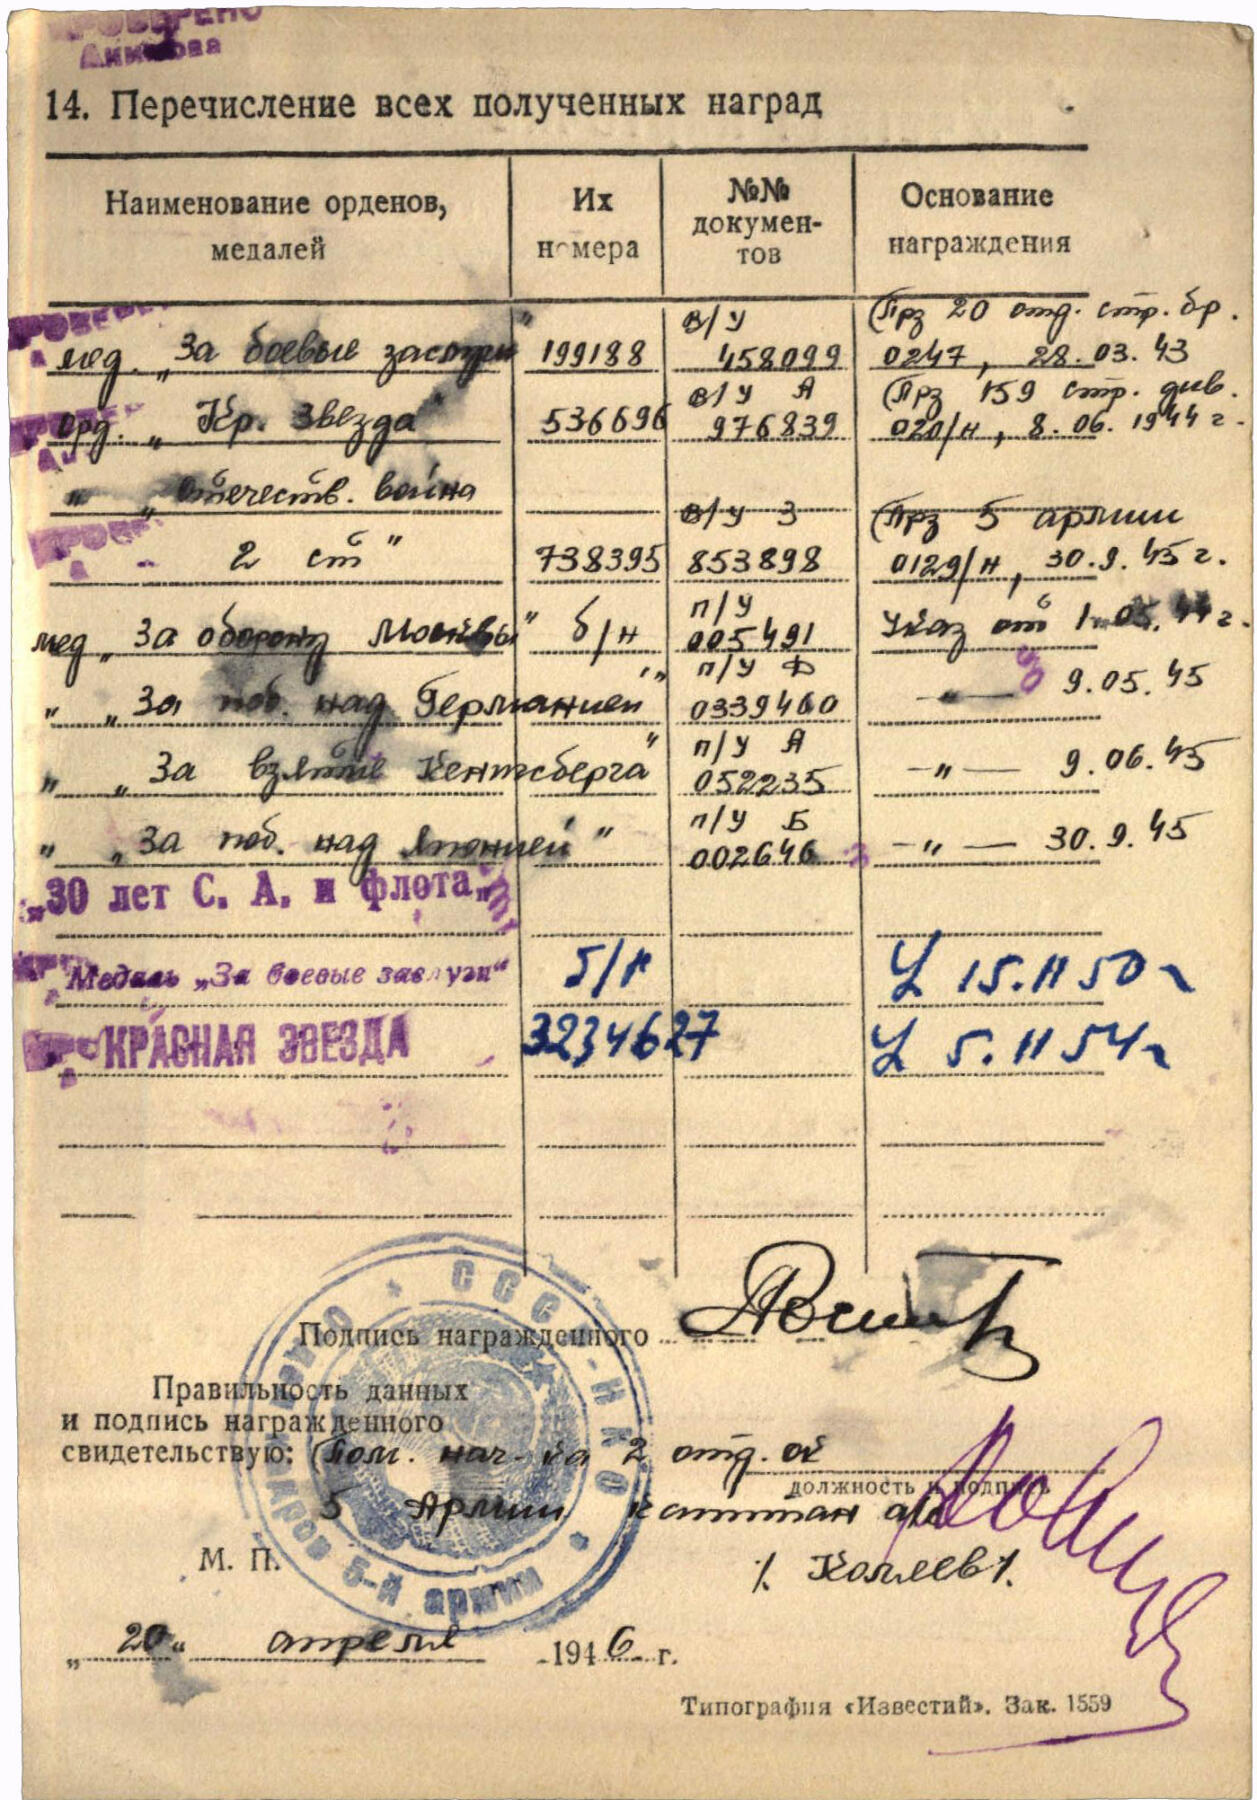 ПРОВЕРЕНО
14. Перечисление всех полученных наград
Наименование орденов, медалей
Их номера
№№ докумен-тов
Основание награждения
ПРОВЕРЕ
мед. „За боевые заслуги" 199188 в/у 458099 Прз 20 отд. стр. бр. 0247, 28.03.43
орд. „Кр. Звезда" 536696 в/у А 976839 Прз 159 стр. див. 020/н, 8.06.1944 г.
" „Отечеств. война
2 ст" 738395 в/у З 853898 Прз 5 армии 0129/н, 30.9.45 г.
мед „За оборону Москвы" б/н п/у 005491 Указ от 1.05.44 г.
" „За поб. над Германией" п/у Ф 0339460 —"— 9.05.45
" „За взятие Кенигсберга" п/у А 052235 —"— 9.06.45
" „За поб. над Японией" п/у Б 002646 —"— 30.9.45
„30 лет С. А. и флота„
Медаль „За боевые заслуги" б/н У 15.11 50 г
КРАСНАЯ ЗВЕЗДА 3234627 У 5.11 54 г
Подпись награжденного
Правильность данных
и подпись награжденного
свидетельствую: Пом. нач-ка 2 отд. ок
должность и подпись
5 Армии капитан а/с
М. П.
/. Коллев /.
СССР - НКО
5-й армии
„20" апреля 1946 г.
Типография «Известий». Зак. 1559